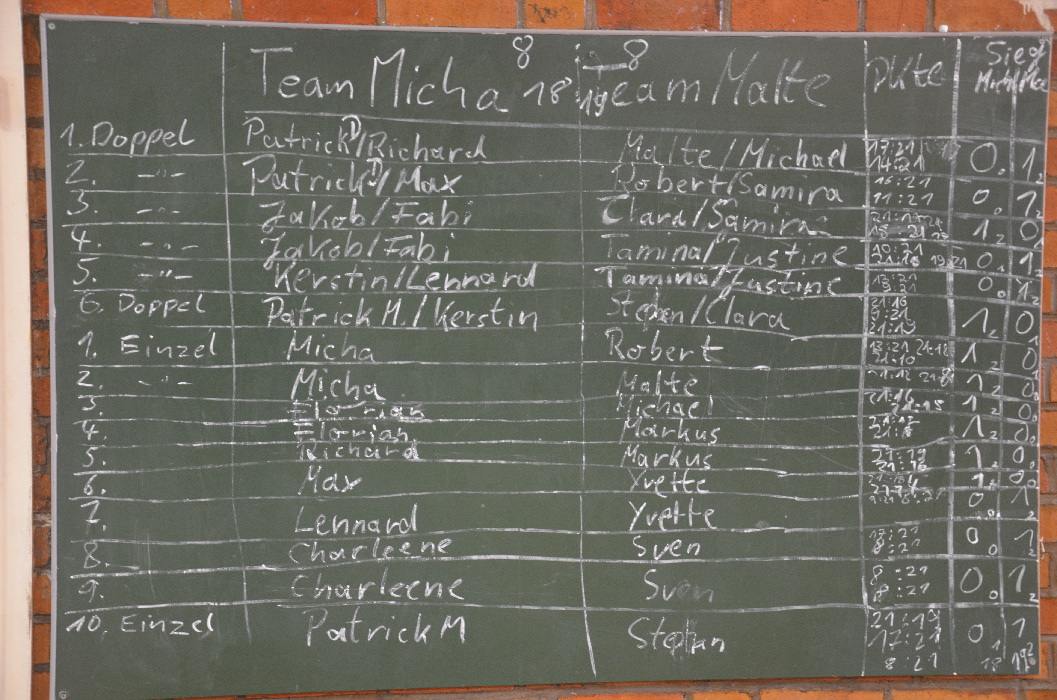 8 8 Sieg
Team Micha 18 19 Team Malte Pkte Mich Ma
1. Doppel Patrick D/Richard Malte/Michael 17:21 14:21 0 1
2. -"- Patrick D/Max Robert/Samira 15:21 11:21 0 1
3. -"- Jakob/Fabi Clara/Samira 1 0
4. -"- Jakob/Fabi Tamina/Justine 10:21 0 1
5. -"- Kerstin/Lennard Tamina/Justine 0 1
6. Doppel Patrick M./Kerstin Stephan/Clara 21:16 9:21 21:19 1 0
1. Einzel Micha Robert 13:21 21:18 21:10 1 0
2. -"- Micha Malte 1 0
3. Florian Michael 21:16 21:15 1 0
4. Florian Markus 1 0
5. Richard Markus 21:19 21:16 1 0
6. Max Yvette 1 0
7. Lennard Yvette 0 1
8. Charleene Sven 13:21 8:21 0 1
9. Charleene Sven 8:21 8:21 0 1
10. Einzel Patrick M Stephan 21:19 17:21 8:21 0 1
18 19